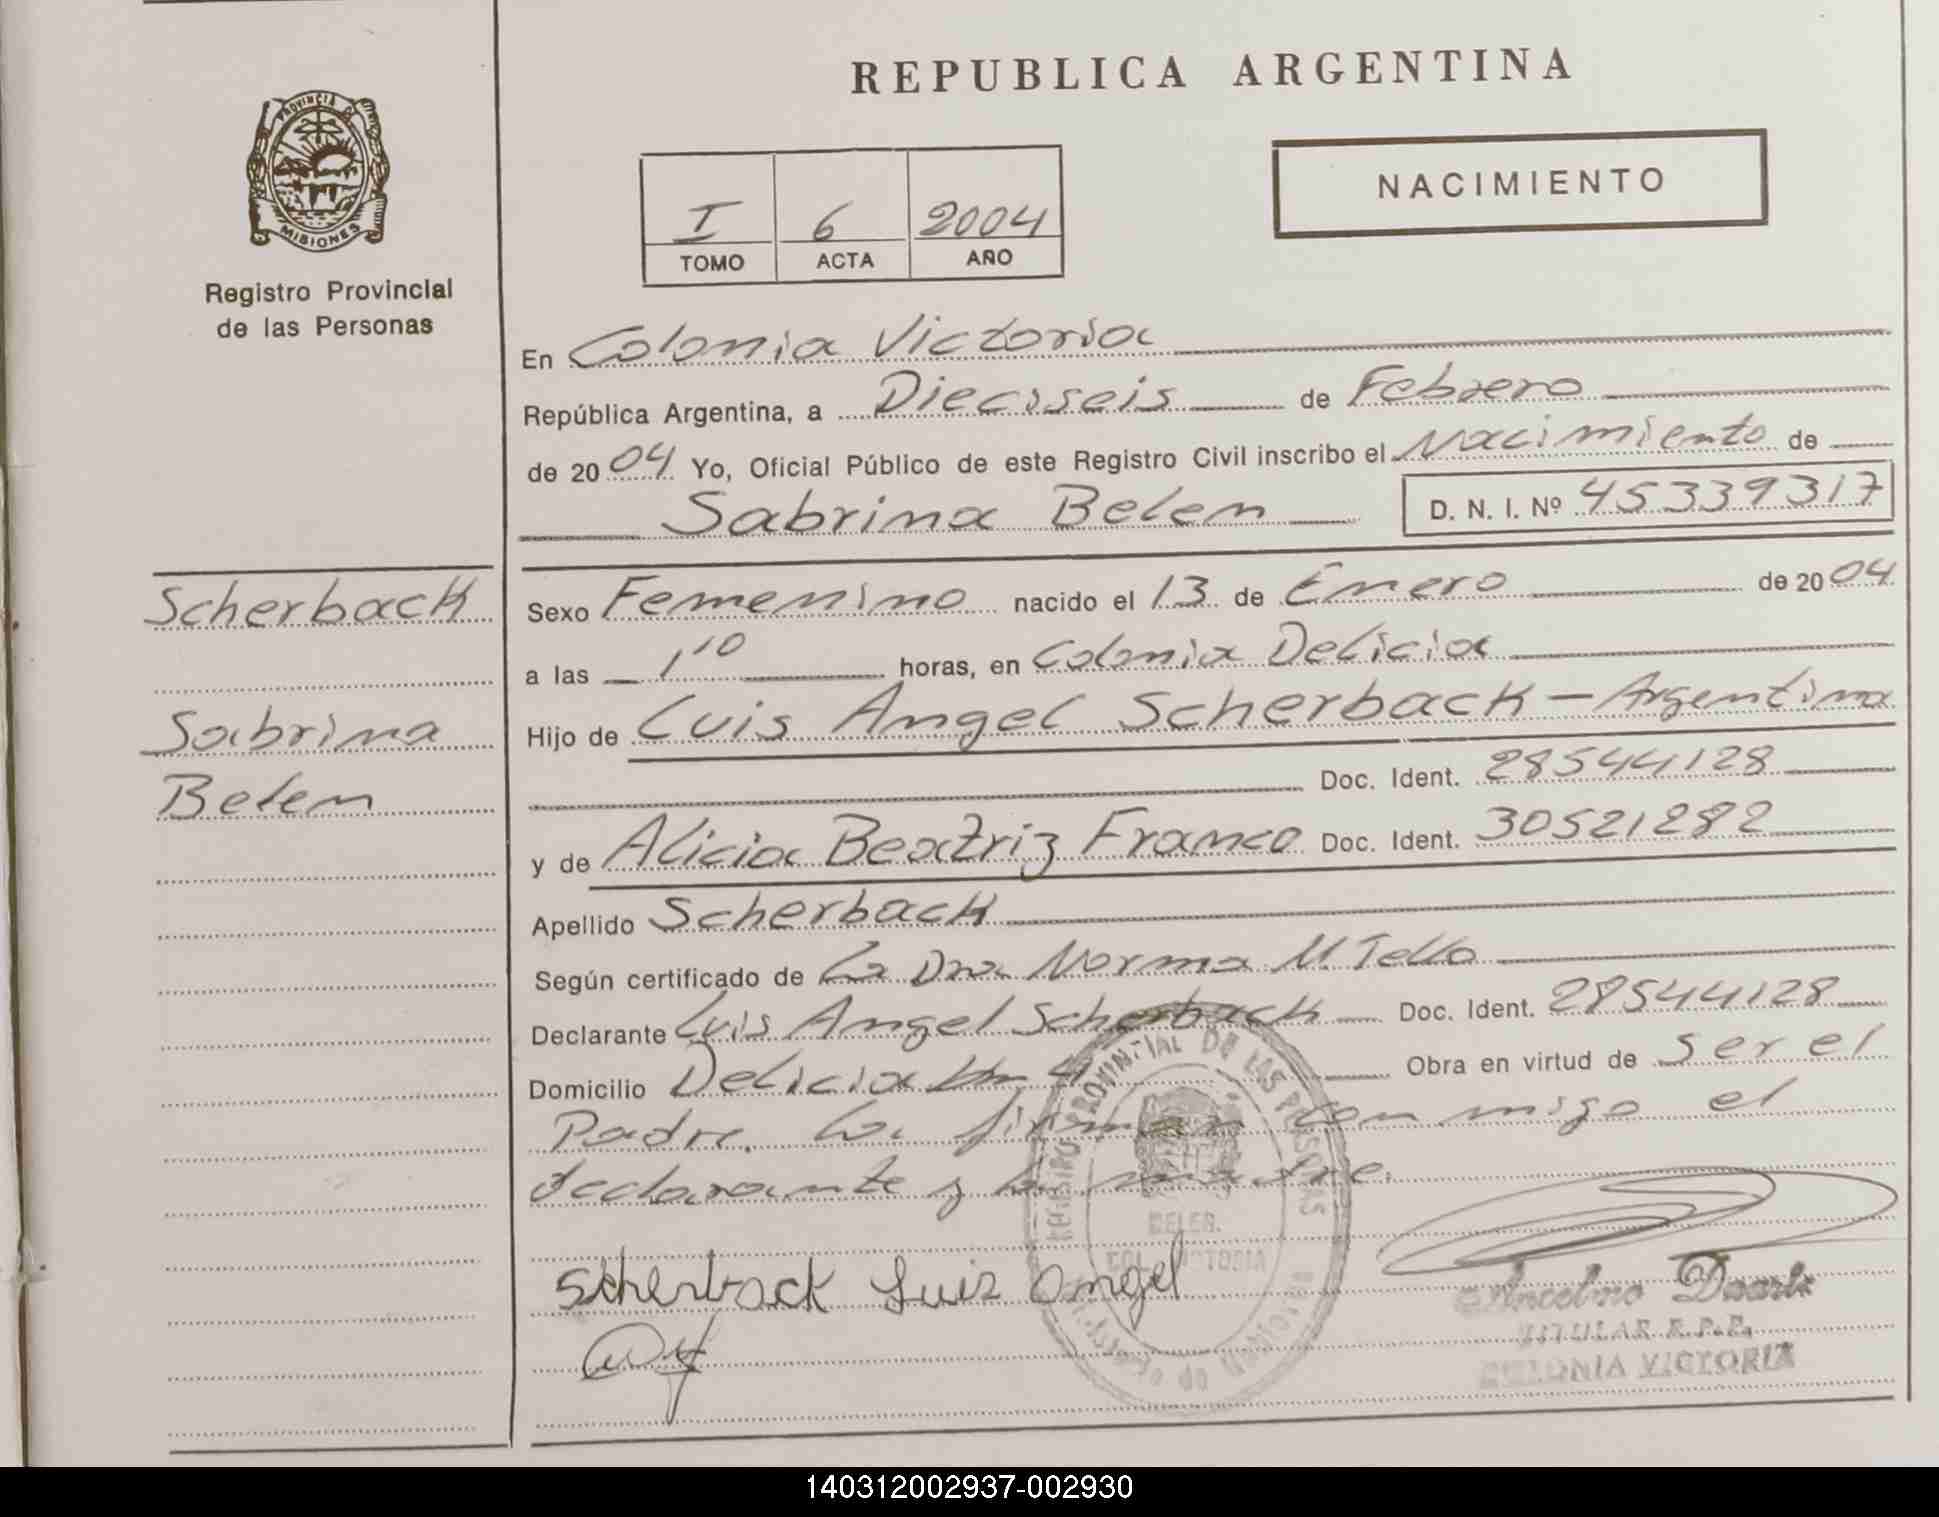 REPUBLICA ARGENTINA
PROVINCIA DE
MISIONES
Registro Provincial
de las Personas
NACIMIENTO
I 6 2004
TOMO ACTA AÑO
En Colonia Victoria
República Argentina, a Dieciseis de Febrero
de 2004 Yo, Oficial Público de este Registro Civil inscribo el Nacimiento de
Sabrina Belen D. N. I. Nº 45339317
Scherback
Sabrina
Belen
Sexo Femenino nacido el 13 de Enero de 2004
a las 1 10 horas, en Colonia Delicia
Hijo de Luis Angel Scherback - Argentina
Doc. Ident. 28544128
y de Alicia Beatriz Franco Doc. Ident. 30521282
Apellido Scherback
Según certificado de La Dra Norma M. Tello
Declarante Luis Angel Scherback Doc. Ident. 28544128
Domicilio Delicia km 4 Obra en virtud de ser el
Padre. La firman con migo el
declarante y la madre.
REGISTRO PROVINTIAL DE LAS PERSONAS
DELEG.
COL. VICTORIA
Scherback Luis Angel
Ancelmo Duarte
TITULAR R.P.P.
COLONIA VICTORIA
140312002937-002930